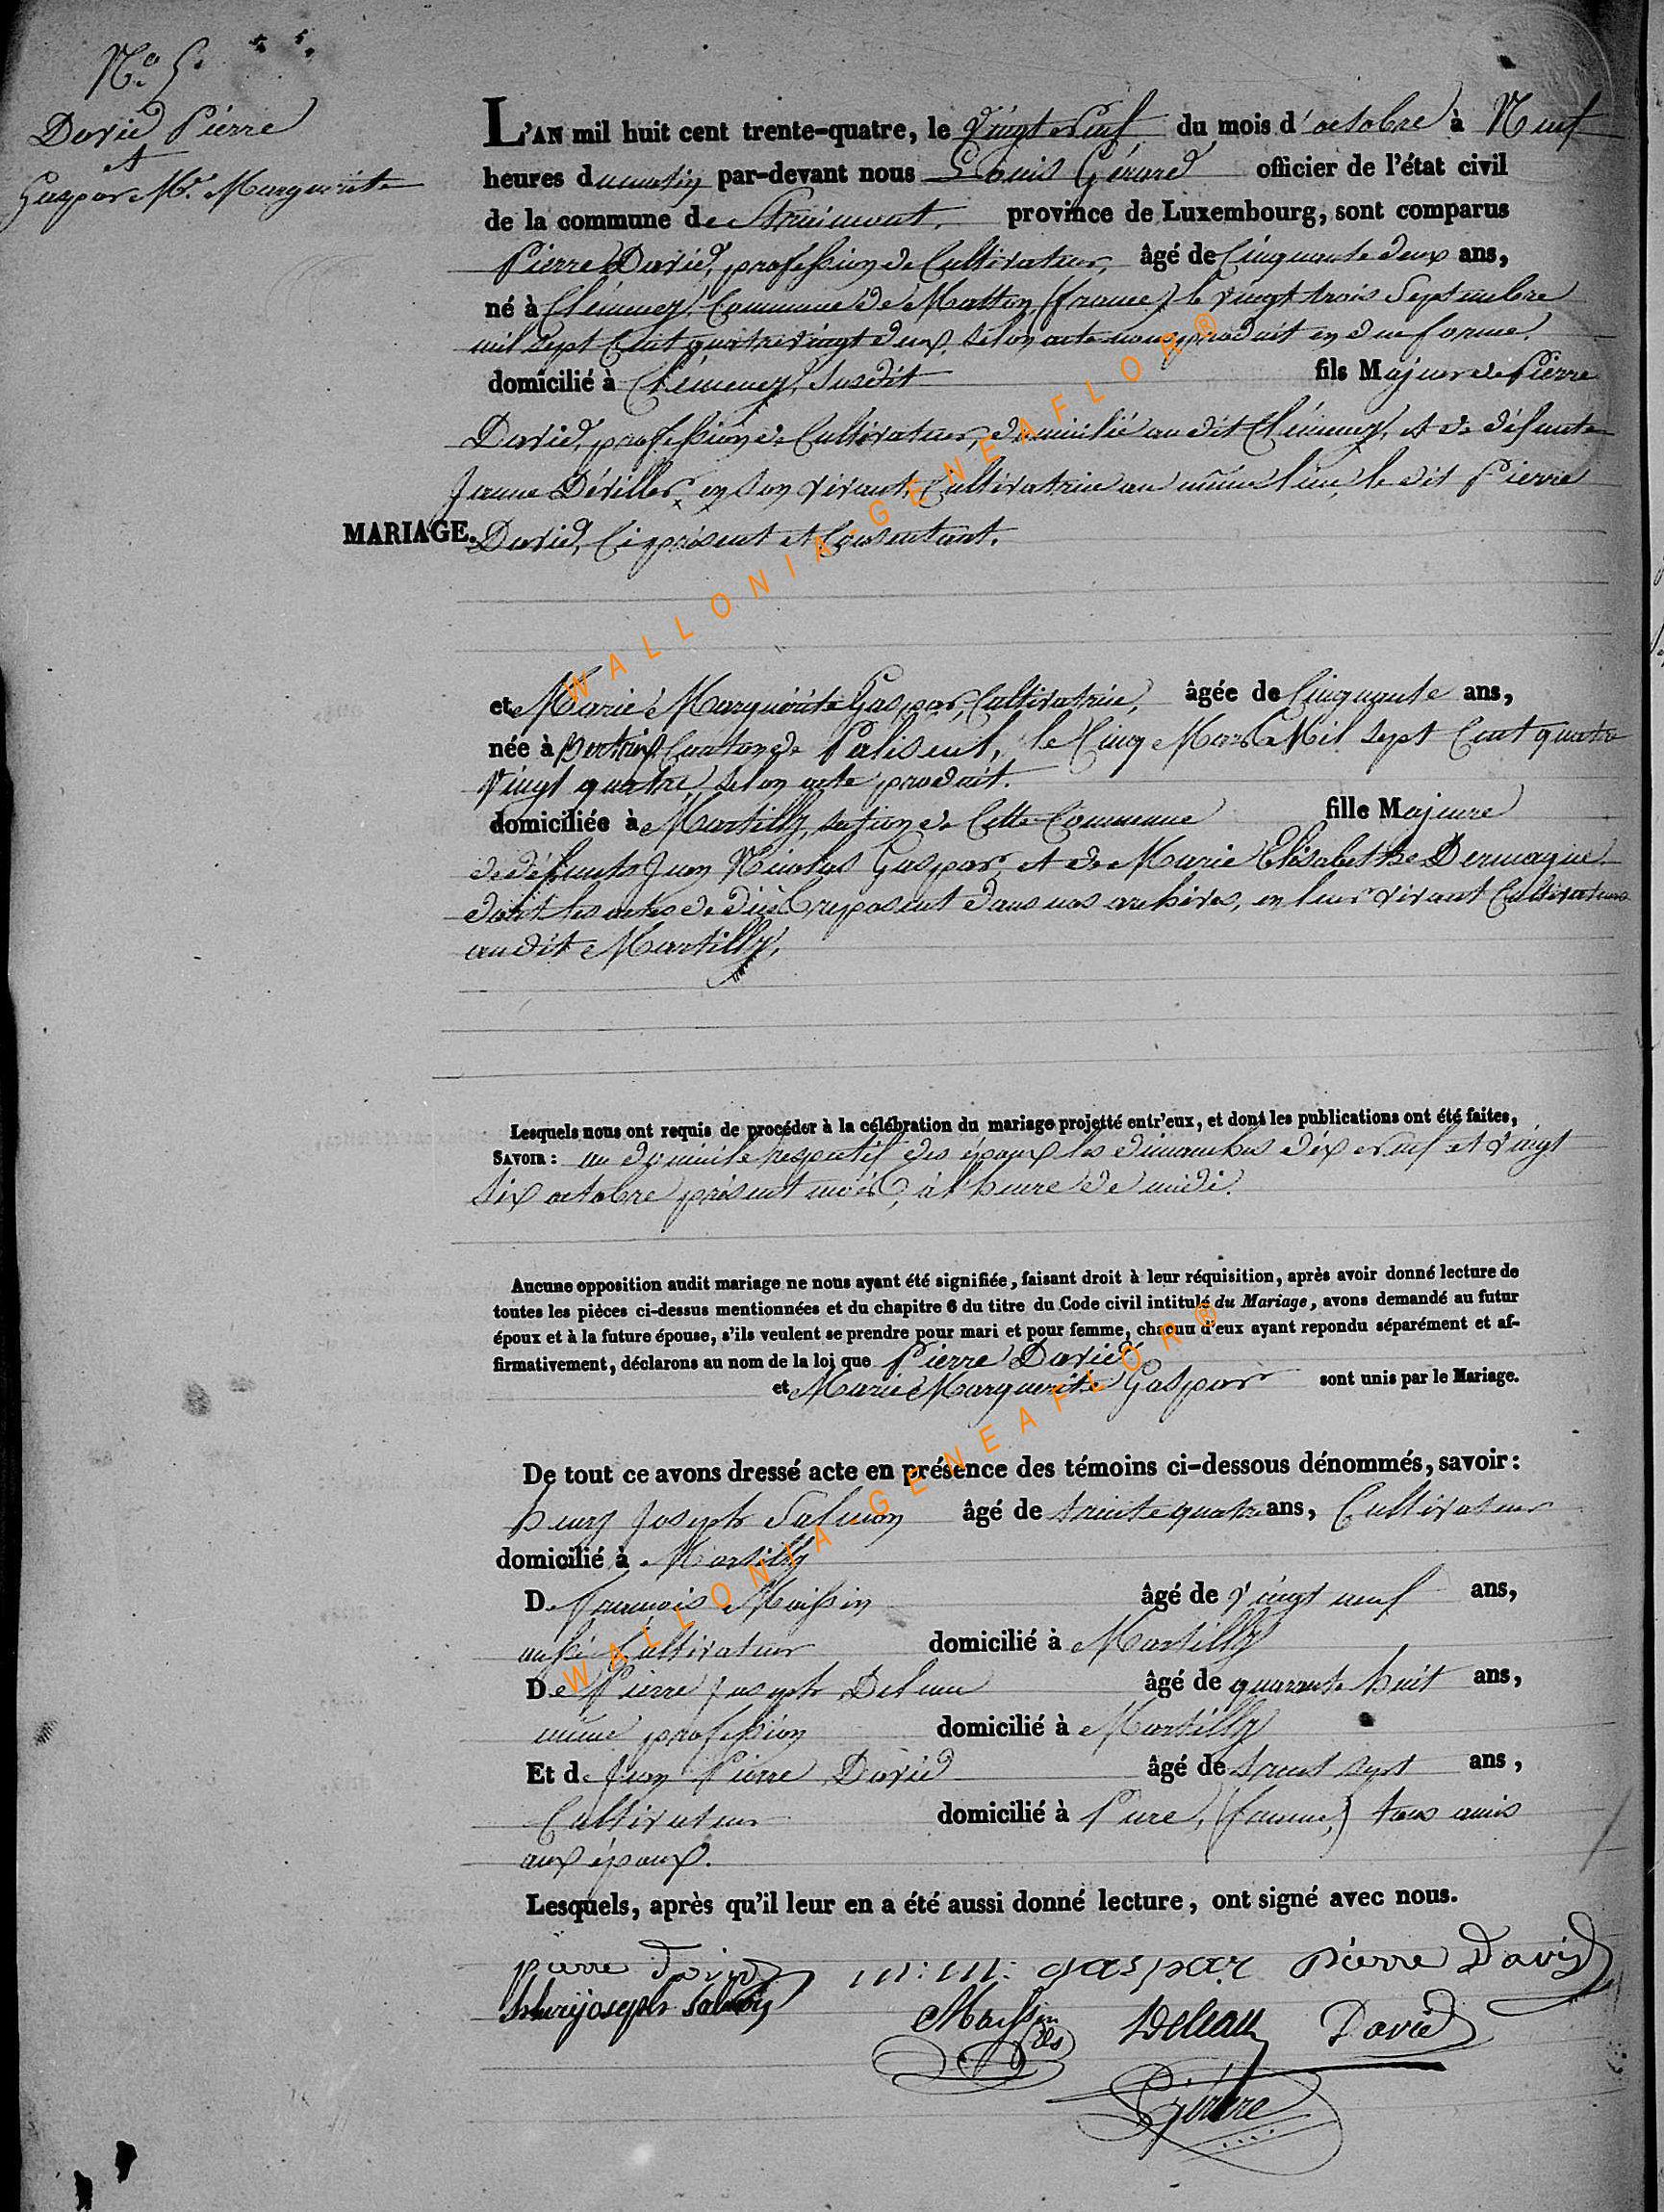 N.o 5.
David Pierre
et
Gaspar M.ie Marguerite
L'AN mil huit cent trente-quatre, le vingt neuf du mois d'octobre à Neuf
heures du matin par-devant nous Louis Gérard officier de l'état civil
de la commune de Straimont, province de Luxembourg, sont comparus
Pierre David, profession de Cultivateur, âgé de Cinquante deux ans,
né à Clémency, Commune de Matton, (france) le vingt trois Septembre
mil sept Cent quatre vingt deux, selon acte nous produit en due forme.
domicilié à Clémency, susdit fils Majeur de Pierre
David, profession de Cultivateur, domicilié au dit Clémency, et de défunte
Jeanne Déviller, en son vivant, Cultivatrice au même lieu, le dit Pierre
MARIAGE. David, Ci présent et Consentant.
et Marie Marguérite Gaspar, Cultivatrice, âgée de Cinquante ans,
née à Bertrix, Canton de Paliseul, le Cinq Mars Mil sept Cent quatre
vingt quatre, selon acte produit.
domiciliée à Martilly, section de Cette Commune fille Majeure
de défunts Jean Nicolas Gaspar, et de Marie Elisabethe Dermagne
dont les actes de décès reposent dans nos archives, en leur vivant Cultivateurs
audit Martilly,
Lesquels nous ont requis de procéder à la célébration du mariage projetté entr'eux, et dont les publications ont été faites,
SAVOIR : au domicile respectif des époux les dimanches dix neuf et vingt
six octobre présent mois, à l'heure de midi.
Aucune opposition audit mariage ne nous ayant été signifiée, faisant droit à leur réquisition, après avoir donné lecture de
toutes les pièces ci-dessus mentionnées et du chapitre 6 du titre du Code civil intitulé du Mariage, avons demandé au futur
époux et à la future épouse, s'ils veulent se prendre pour mari et pour femme, chacun d'eux ayant repondu séparément et af-
firmativement, déclarons au nom de la loi que Pierre David
et Marie Marguerite Gaspar sont unis par le Mariage.
De tout ce avons dressé acte en présence des témoins ci-dessous dénommés, savoir :
henry Joseph Salmon âgé de trente quatre ans, Cultivateur
domicilié à Martilly
De francois Maissin âgé de vingt neuf ans,
aussi Cultivateur domicilié à Martilly
De Pierre Joseph Deleau âgé de quarante huit ans,
même profession domicilié à Martilly
Et de Jean Pierre David âgé de trent sept ans,
Cultivateur domicilié à Pure, (france,) tous amis
aux époux.
Lesquels, après qu'il leur en a été aussi donné lecture, ont signé avec nous.
pierre david m: m: gaspar pierre David
henrijoseph Salmon Maissin Deleau David
Gérard
WALLONIA-GENEAFLOR®
WALLONIA-GENEAFLOR®